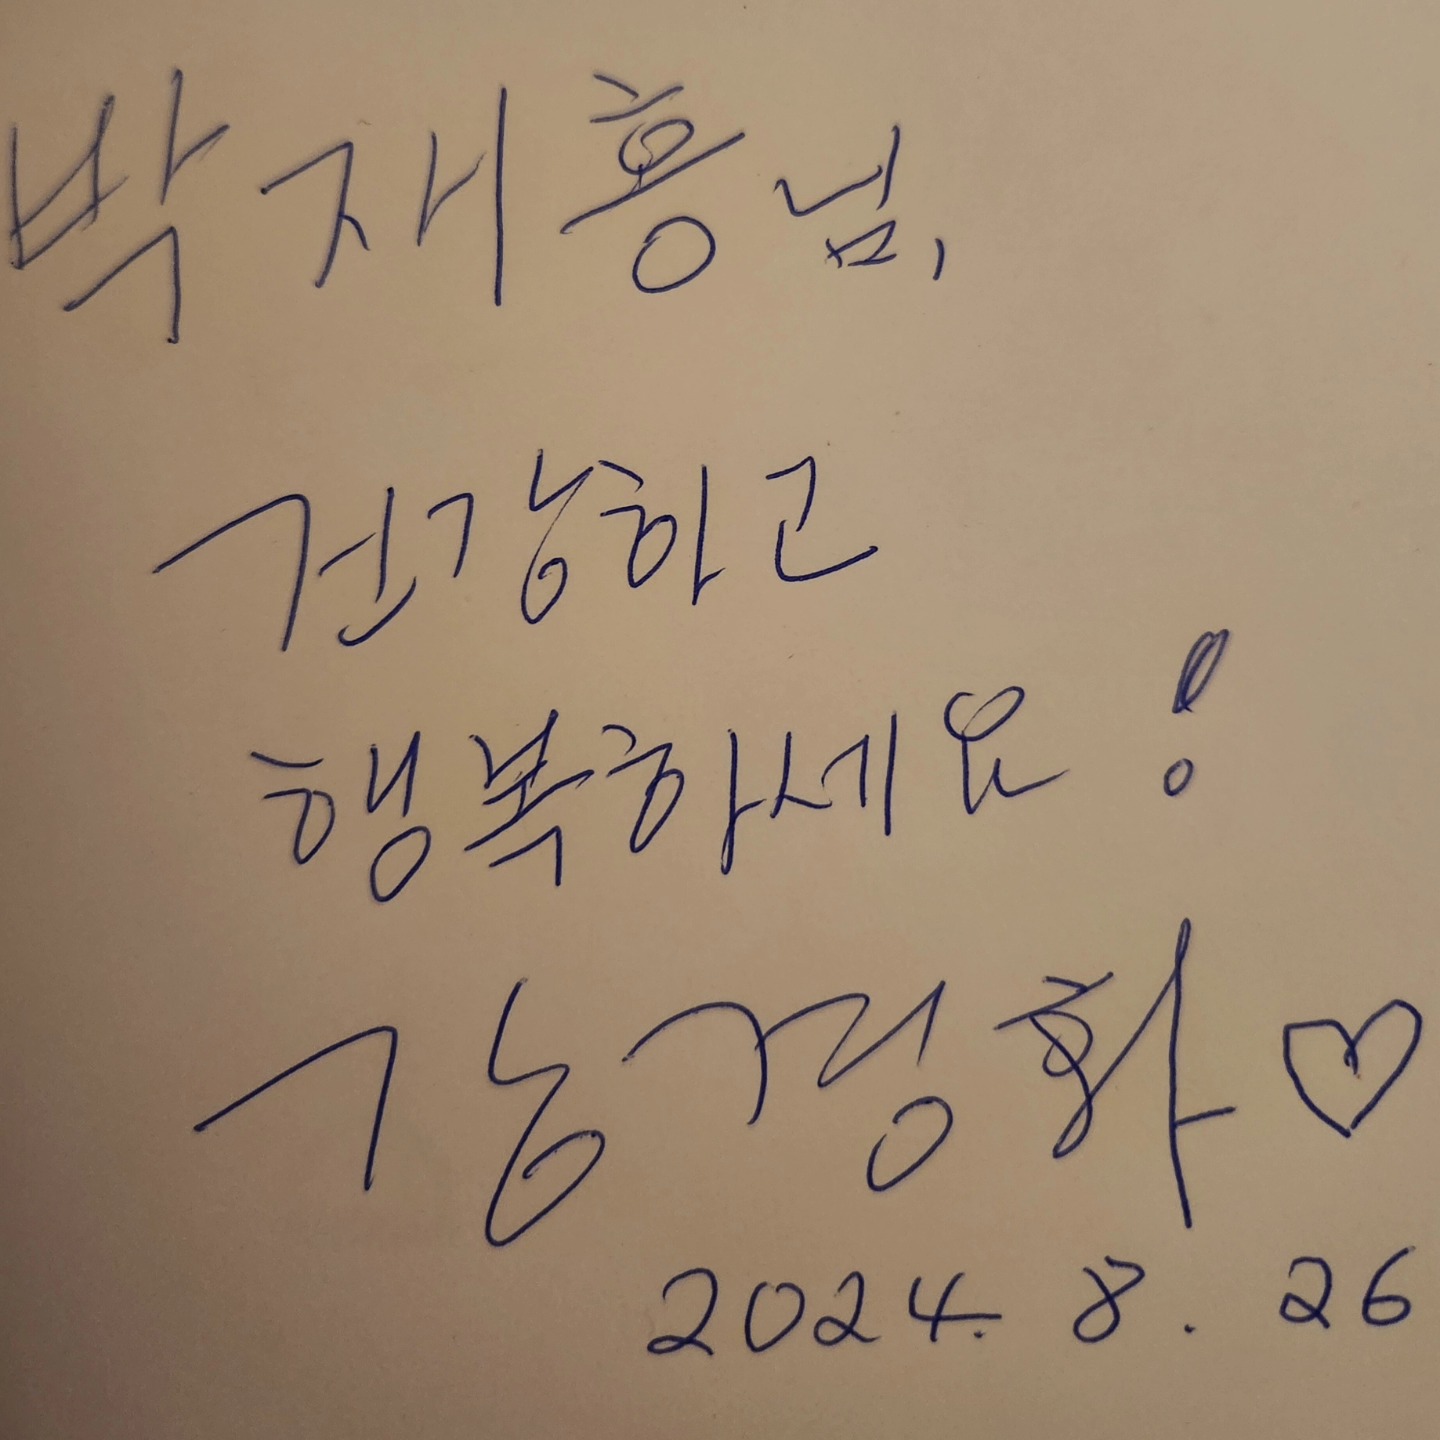 박재홍님,
건강하고
행복하세요!
강경화♡
2024. 8. 26